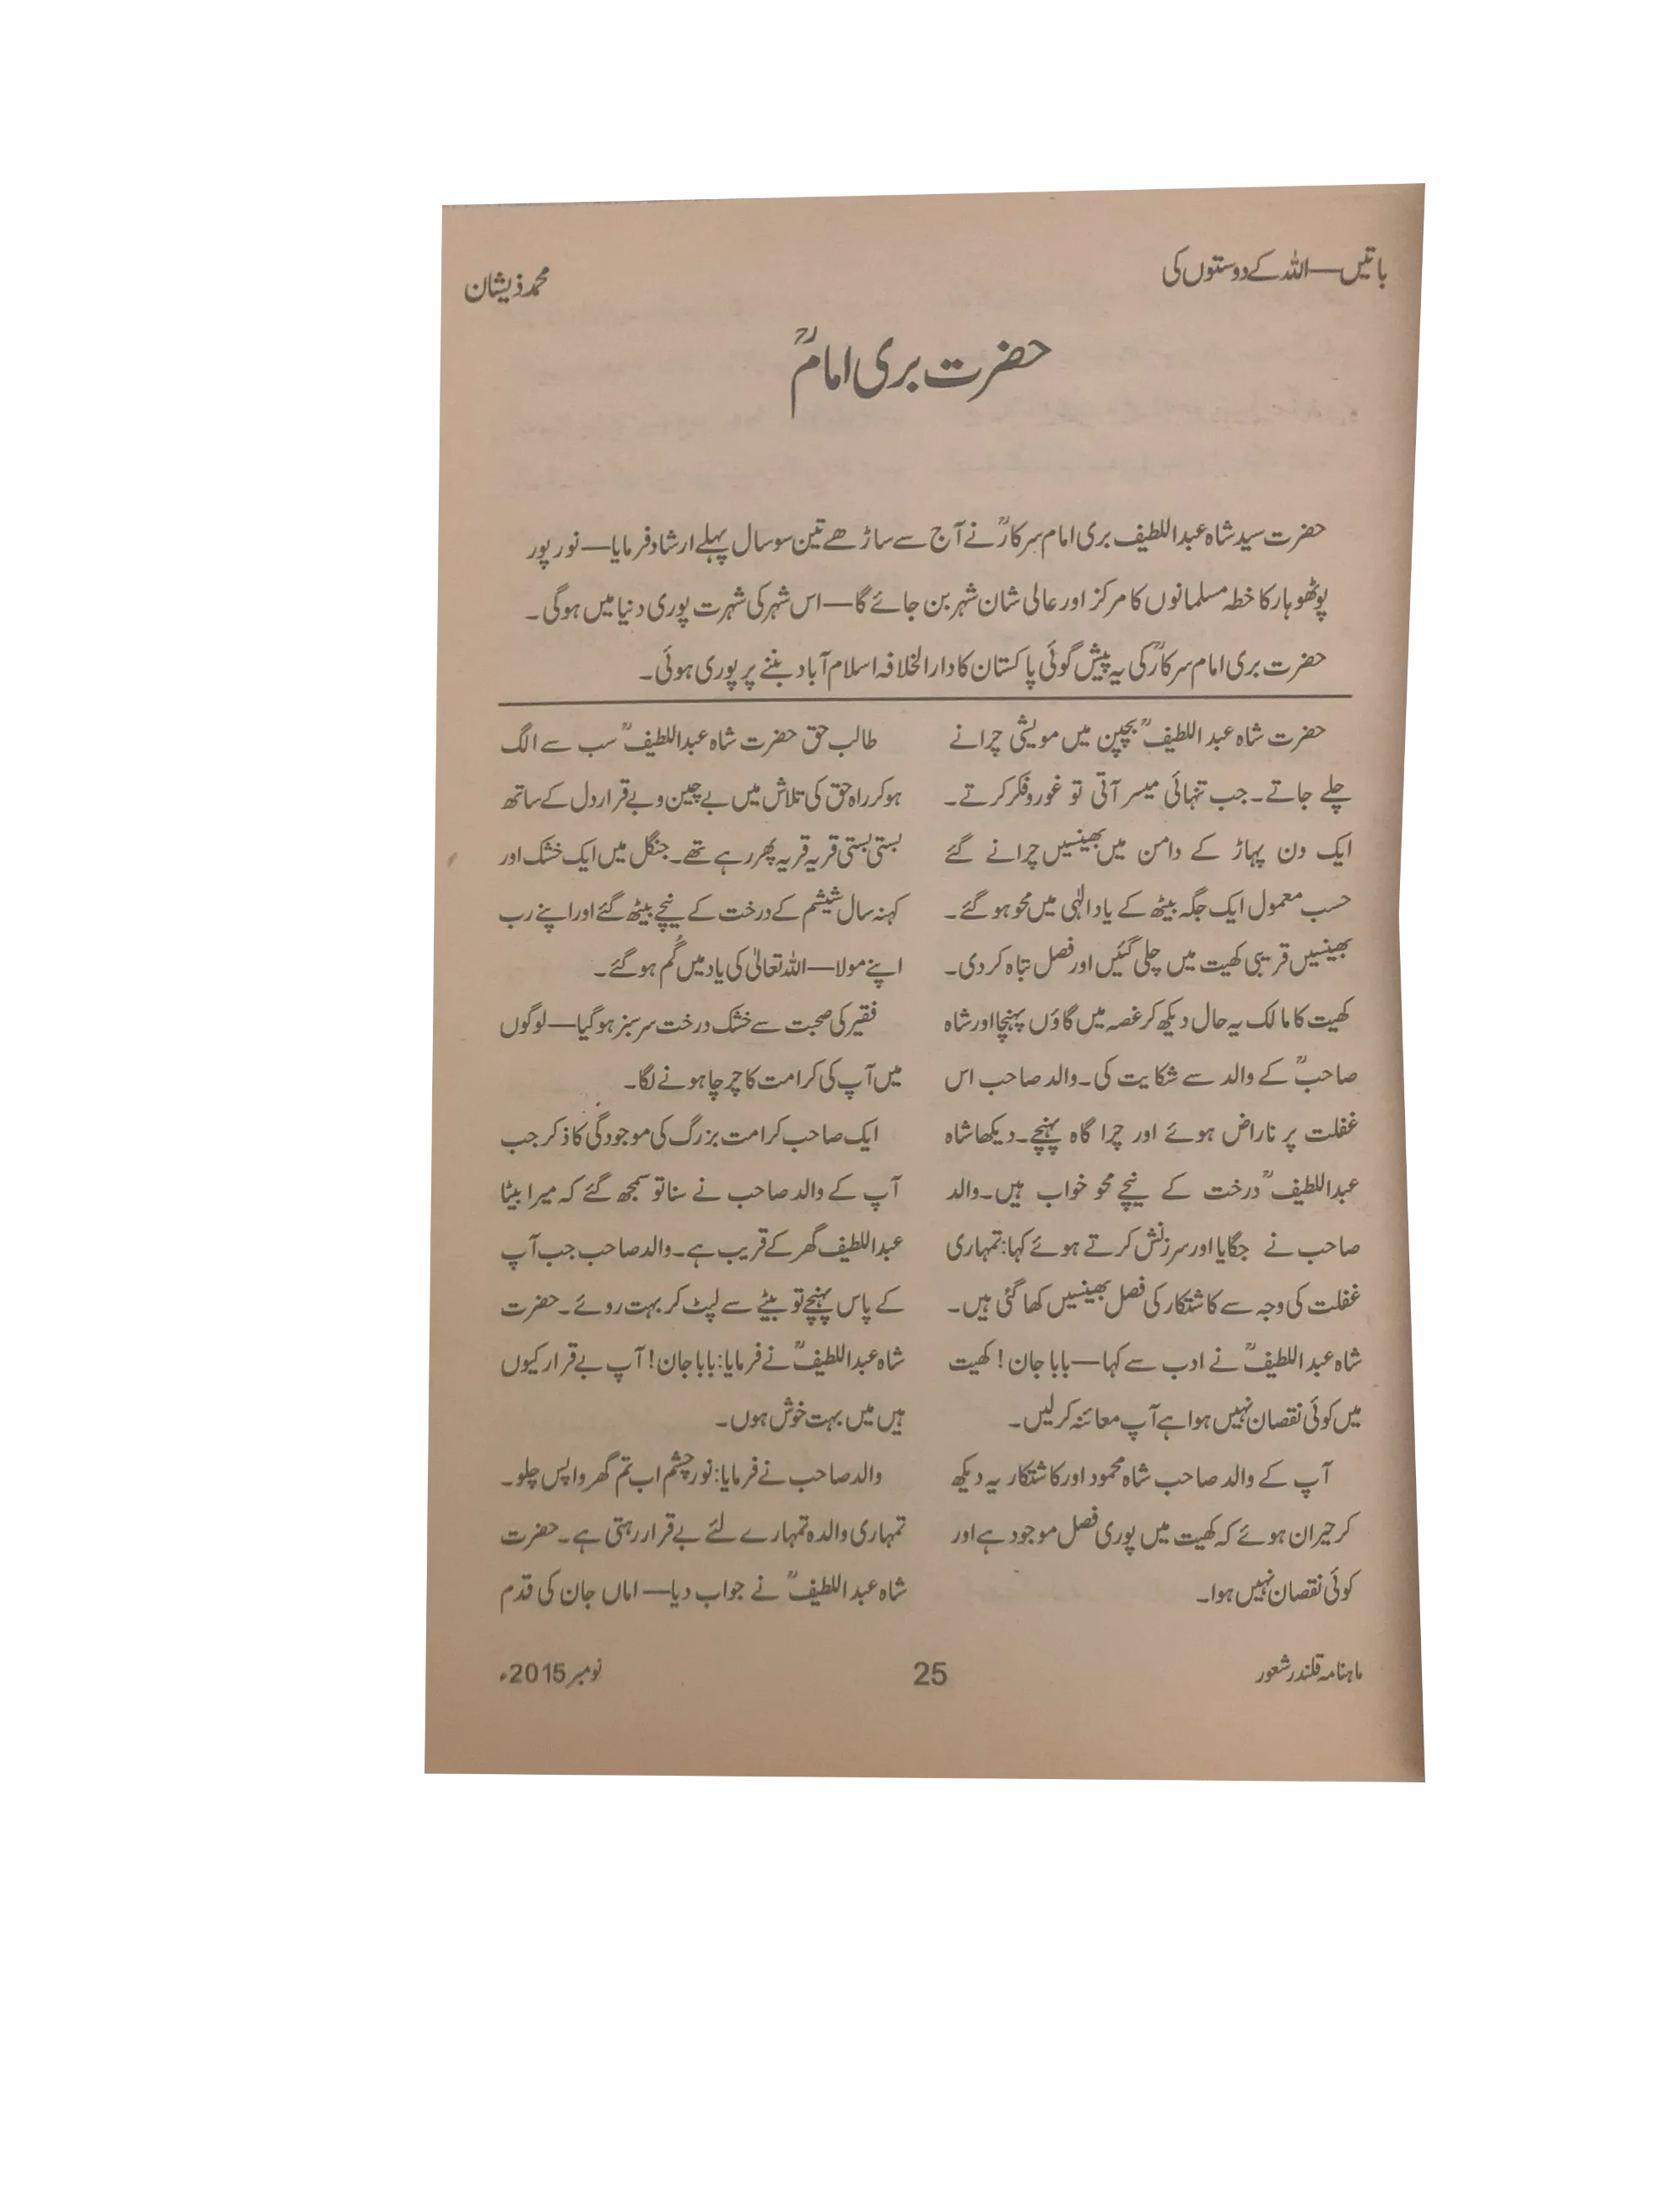 باتیں—اللہ کے دوستوں کی
محمد ذیشان
حضرت بری امامؒ
حضرت سید شاہ عبداللطیف بری امام سرکارؒ نے آج سے ساڑھے تین سو سال پہلے ارشاد فرمایا—نور پور
پوٹھوہار کا خطہ مسلمانوں کا مرکز اور عالی شان شہر بن جائے گا—اس شہر کی شہرت پوری دنیا میں ہوگی۔
حضرت بری امام سرکارؒ کی یہ پیش گوئی پاکستان کا دارالخلافہ اسلام آباد بننے پر پوری ہوئی۔
حضرت شاہ عبداللطیفؒ بچپن میں مویشی چرانے
چلے جاتے۔جب تنہائی میسر آتی تو غور و فکر کرتے۔
ایک دن پہاڑ کے دامن میں بھینسیں چرانے گئے
حسب معمول ایک جگہ بیٹھ کے یاد الٰہی میں محو ہوگئے۔
بھینسیں قریبی کھیت میں چلی گئیں اور فصل تباہ کردی۔
کھیت کا مالک یہ حال دیکھ کر غصہ میں گاؤں پہنچا اور شاہ
صاحبؒ کے والد سے شکایت کی۔والد صاحب اس
غفلت پر ناراض ہوئے اور چراگاہ پہنچے۔دیکھا شاہ
عبداللطیفؒ درخت کے نیچے محو خواب ہیں۔والد
صاحب نے جگایا اور سرزنش کرتے ہوئے کہا:تمہاری
غفلت کی وجہ سے کاشتکار کی فصل بھینسیں کھا گئی ہیں۔
شاہ عبداللطیفؒ نے ادب سے کہا—بابا جان! کھیت
میں کوئی نقصان نہیں ہوا ہے آپ معائنہ کرلیں۔
آپ کے والد صاحب شاہ محمود اور کاشتکار یہ دیکھ
کر حیران ہوئے کہ کھیت میں پوری فصل موجود ہے اور
کوئی نقصان نہیں ہوا۔
طالب حق حضرت شاہ عبداللطیفؒ سب سے الگ
ہو کر راہ حق کی تلاش میں بے چین و بے قرار دل کے ساتھ
بستی بستی قریہ قریہ پھر رہے تھے۔جنگل میں ایک خشک اور
کہنہ سال شیشم کے درخت کے نیچے بیٹھ گئے اور اپنے رب
اپنے مولا—اللہ تعالیٰ کی یاد میں گُم ہوگئے۔
فقیر کی صحبت سے خشک درخت سرسبز ہوگیا—لوگوں
میں آپ کی کرامت کا چرچا ہونے لگا۔
ایک صاحب کرامت بزرگ کی موجودگی کا ذکر جب
آپ کے والد صاحب نے سنا تو سمجھ گئے کہ میرا بیٹا
عبداللطیف گھر کے قریب ہے۔والد صاحب جب آپ
کے پاس پہنچے تو بیٹے سے لپٹ کر بہت روئے۔حضرت
شاہ عبداللطیفؒ نے فرمایا:بابا جان! آپ بے قرار کیوں
ہیں میں بہت خوش ہوں۔
والد صاحب نے فرمایا:نور چشم اب تم گھر واپس چلو۔
تمہاری والدہ تمہارے لئے بے قرار رہتی ہے۔حضرت
شاہ عبداللطیفؒ نے جواب دیا—اماں جان کی قدم
ماہنامہ قلندر شعور
25
نومبر 2015ء